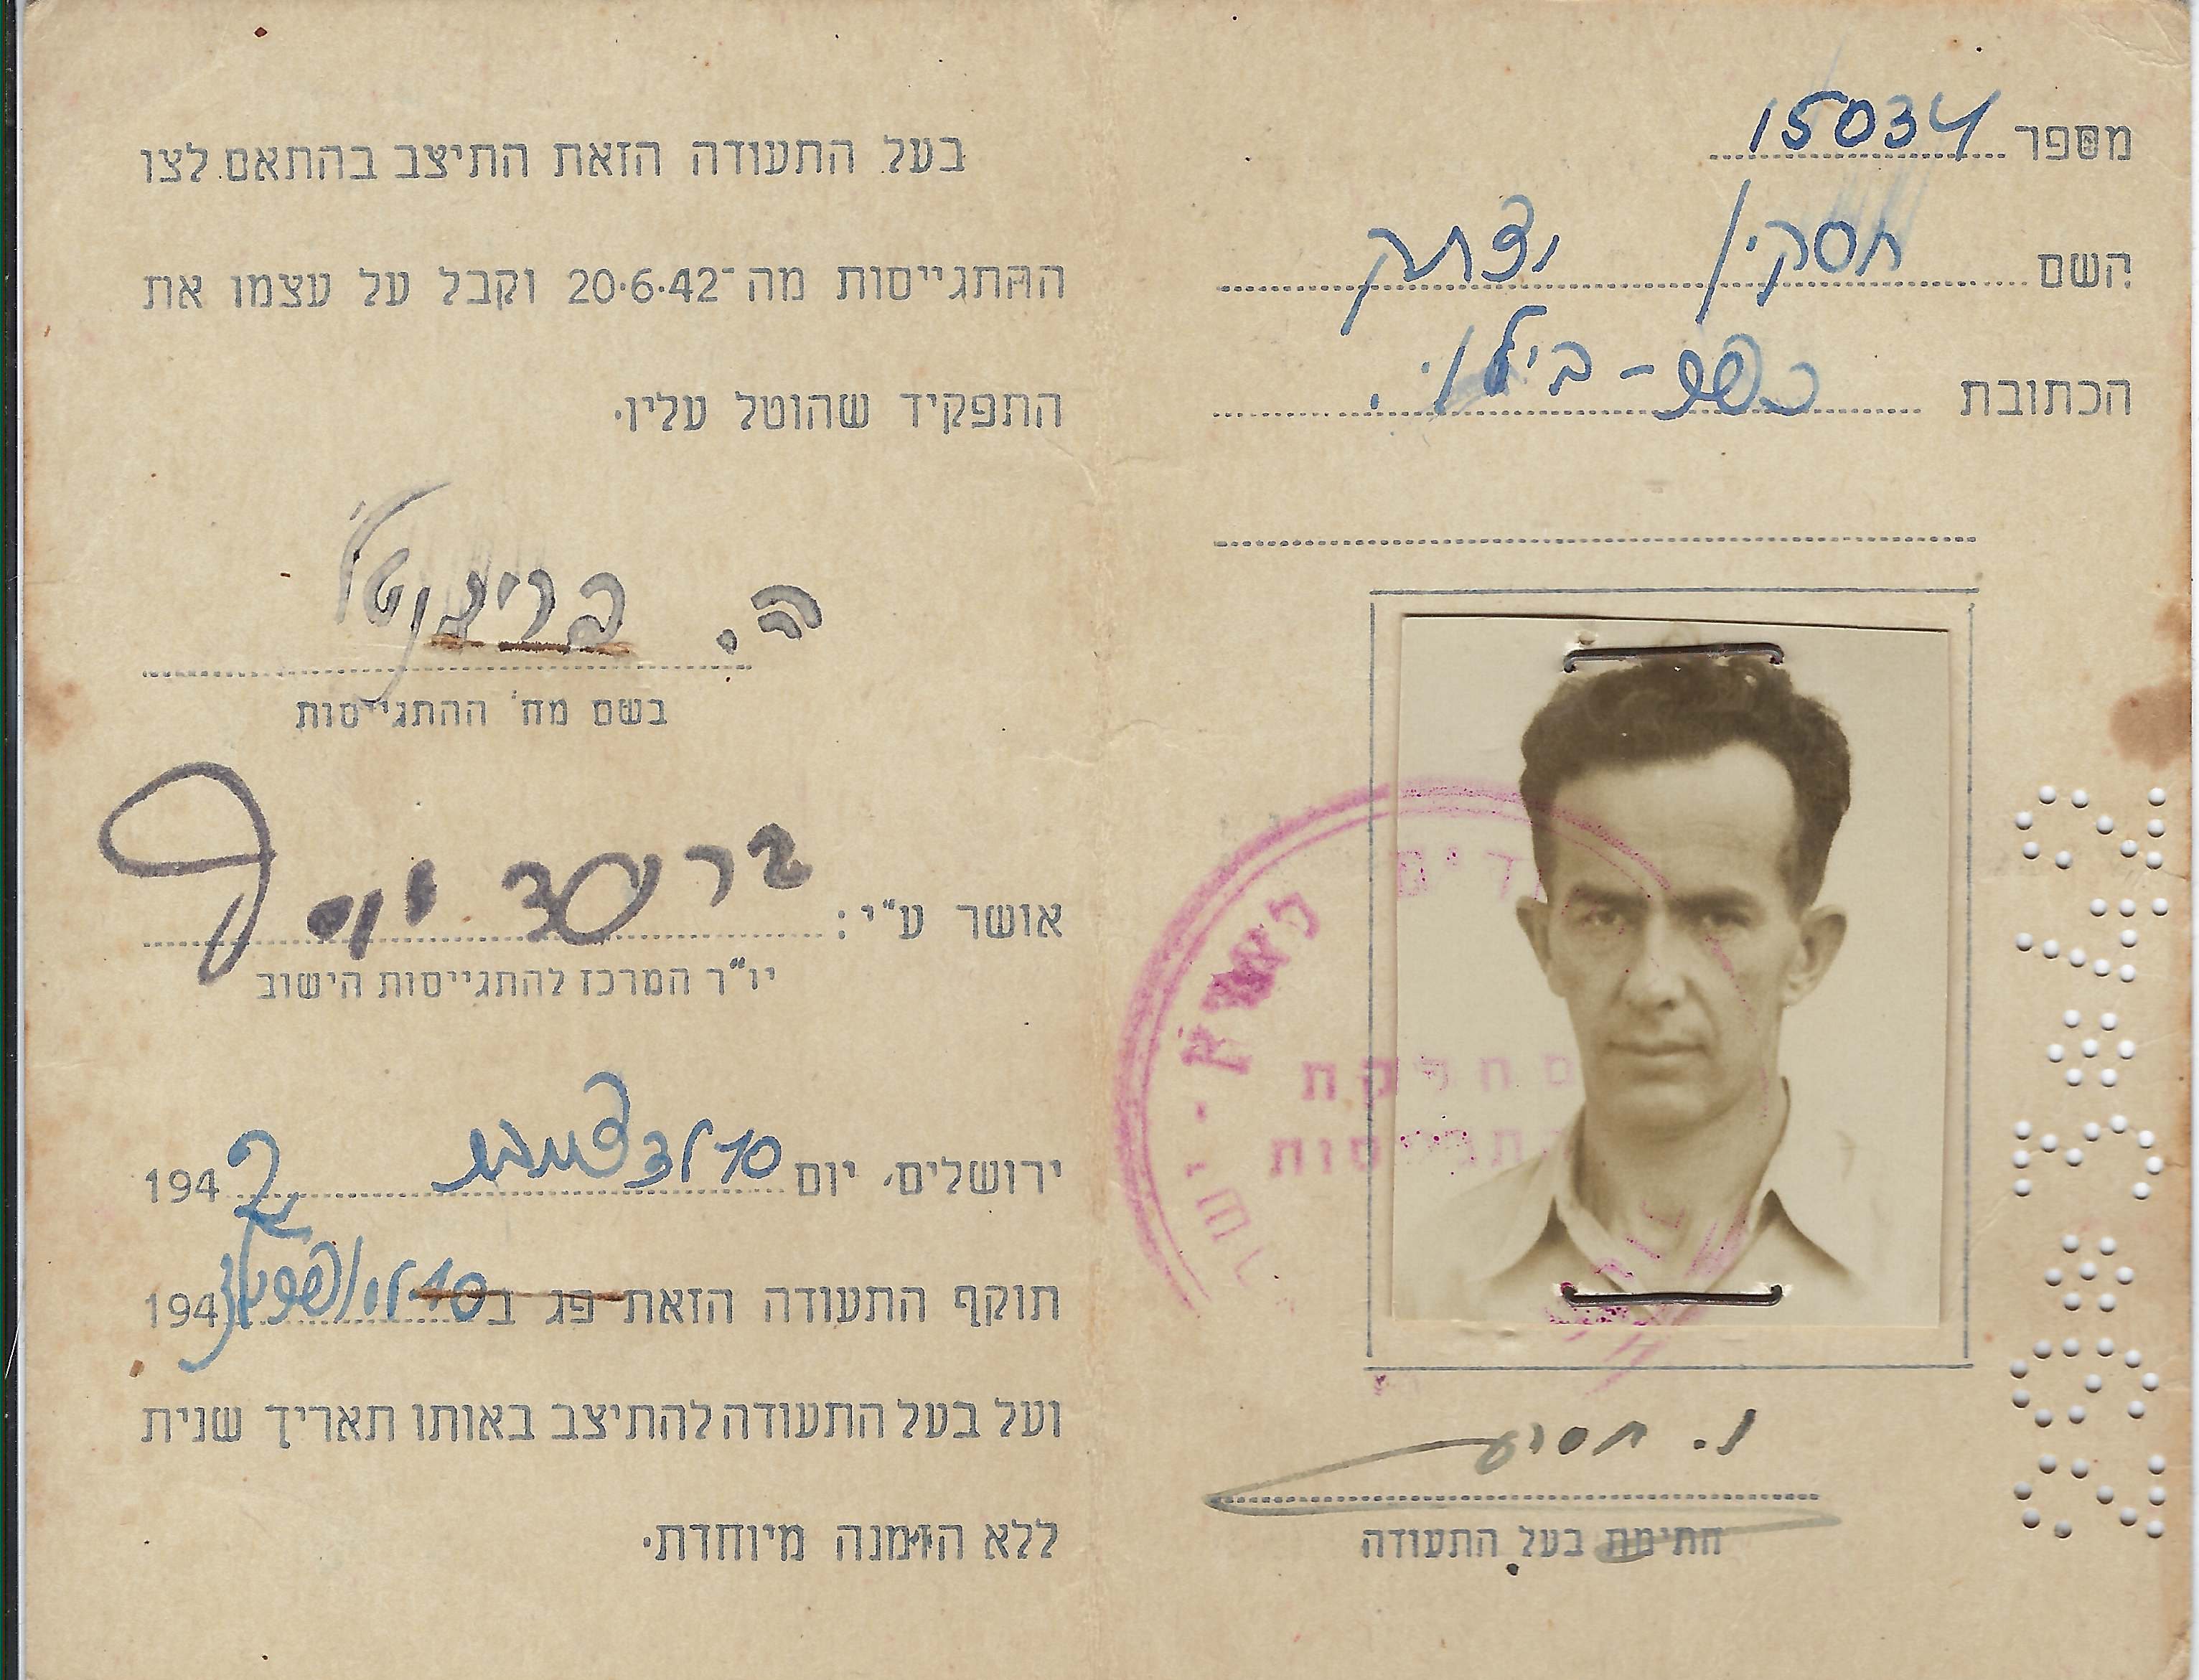 מספר 15034
השם חסקין יצחק
הכתובת כפר-בילו.
חתימת בעל התעודה
מחלקת
התגייסות
בעל התעודה הזאת התיצב בהתאם לצו
ההתגייסות מה־20.6.42 וקבל על עצמו את
התפקיד שהוטל עליו.
ה.
בשם מח' ההתגייסות
אושר ע"י: יוסף
יו"ר המרכז להתגייסות הישוב
ירושלים, יום 10 לדצמבר 1942
תוקף התעודה הזאת פג ב 10 לאפריל 1943
ועל בעל התעודה להתיצב באותו תאריך שנית
ללא הזמנה מיוחדת.